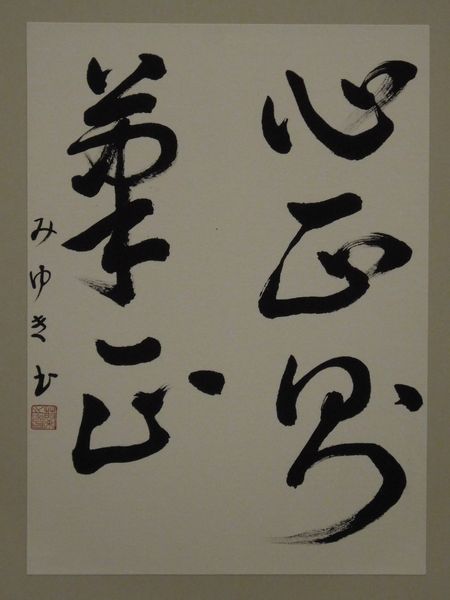 心正則
筆正
みゆき書